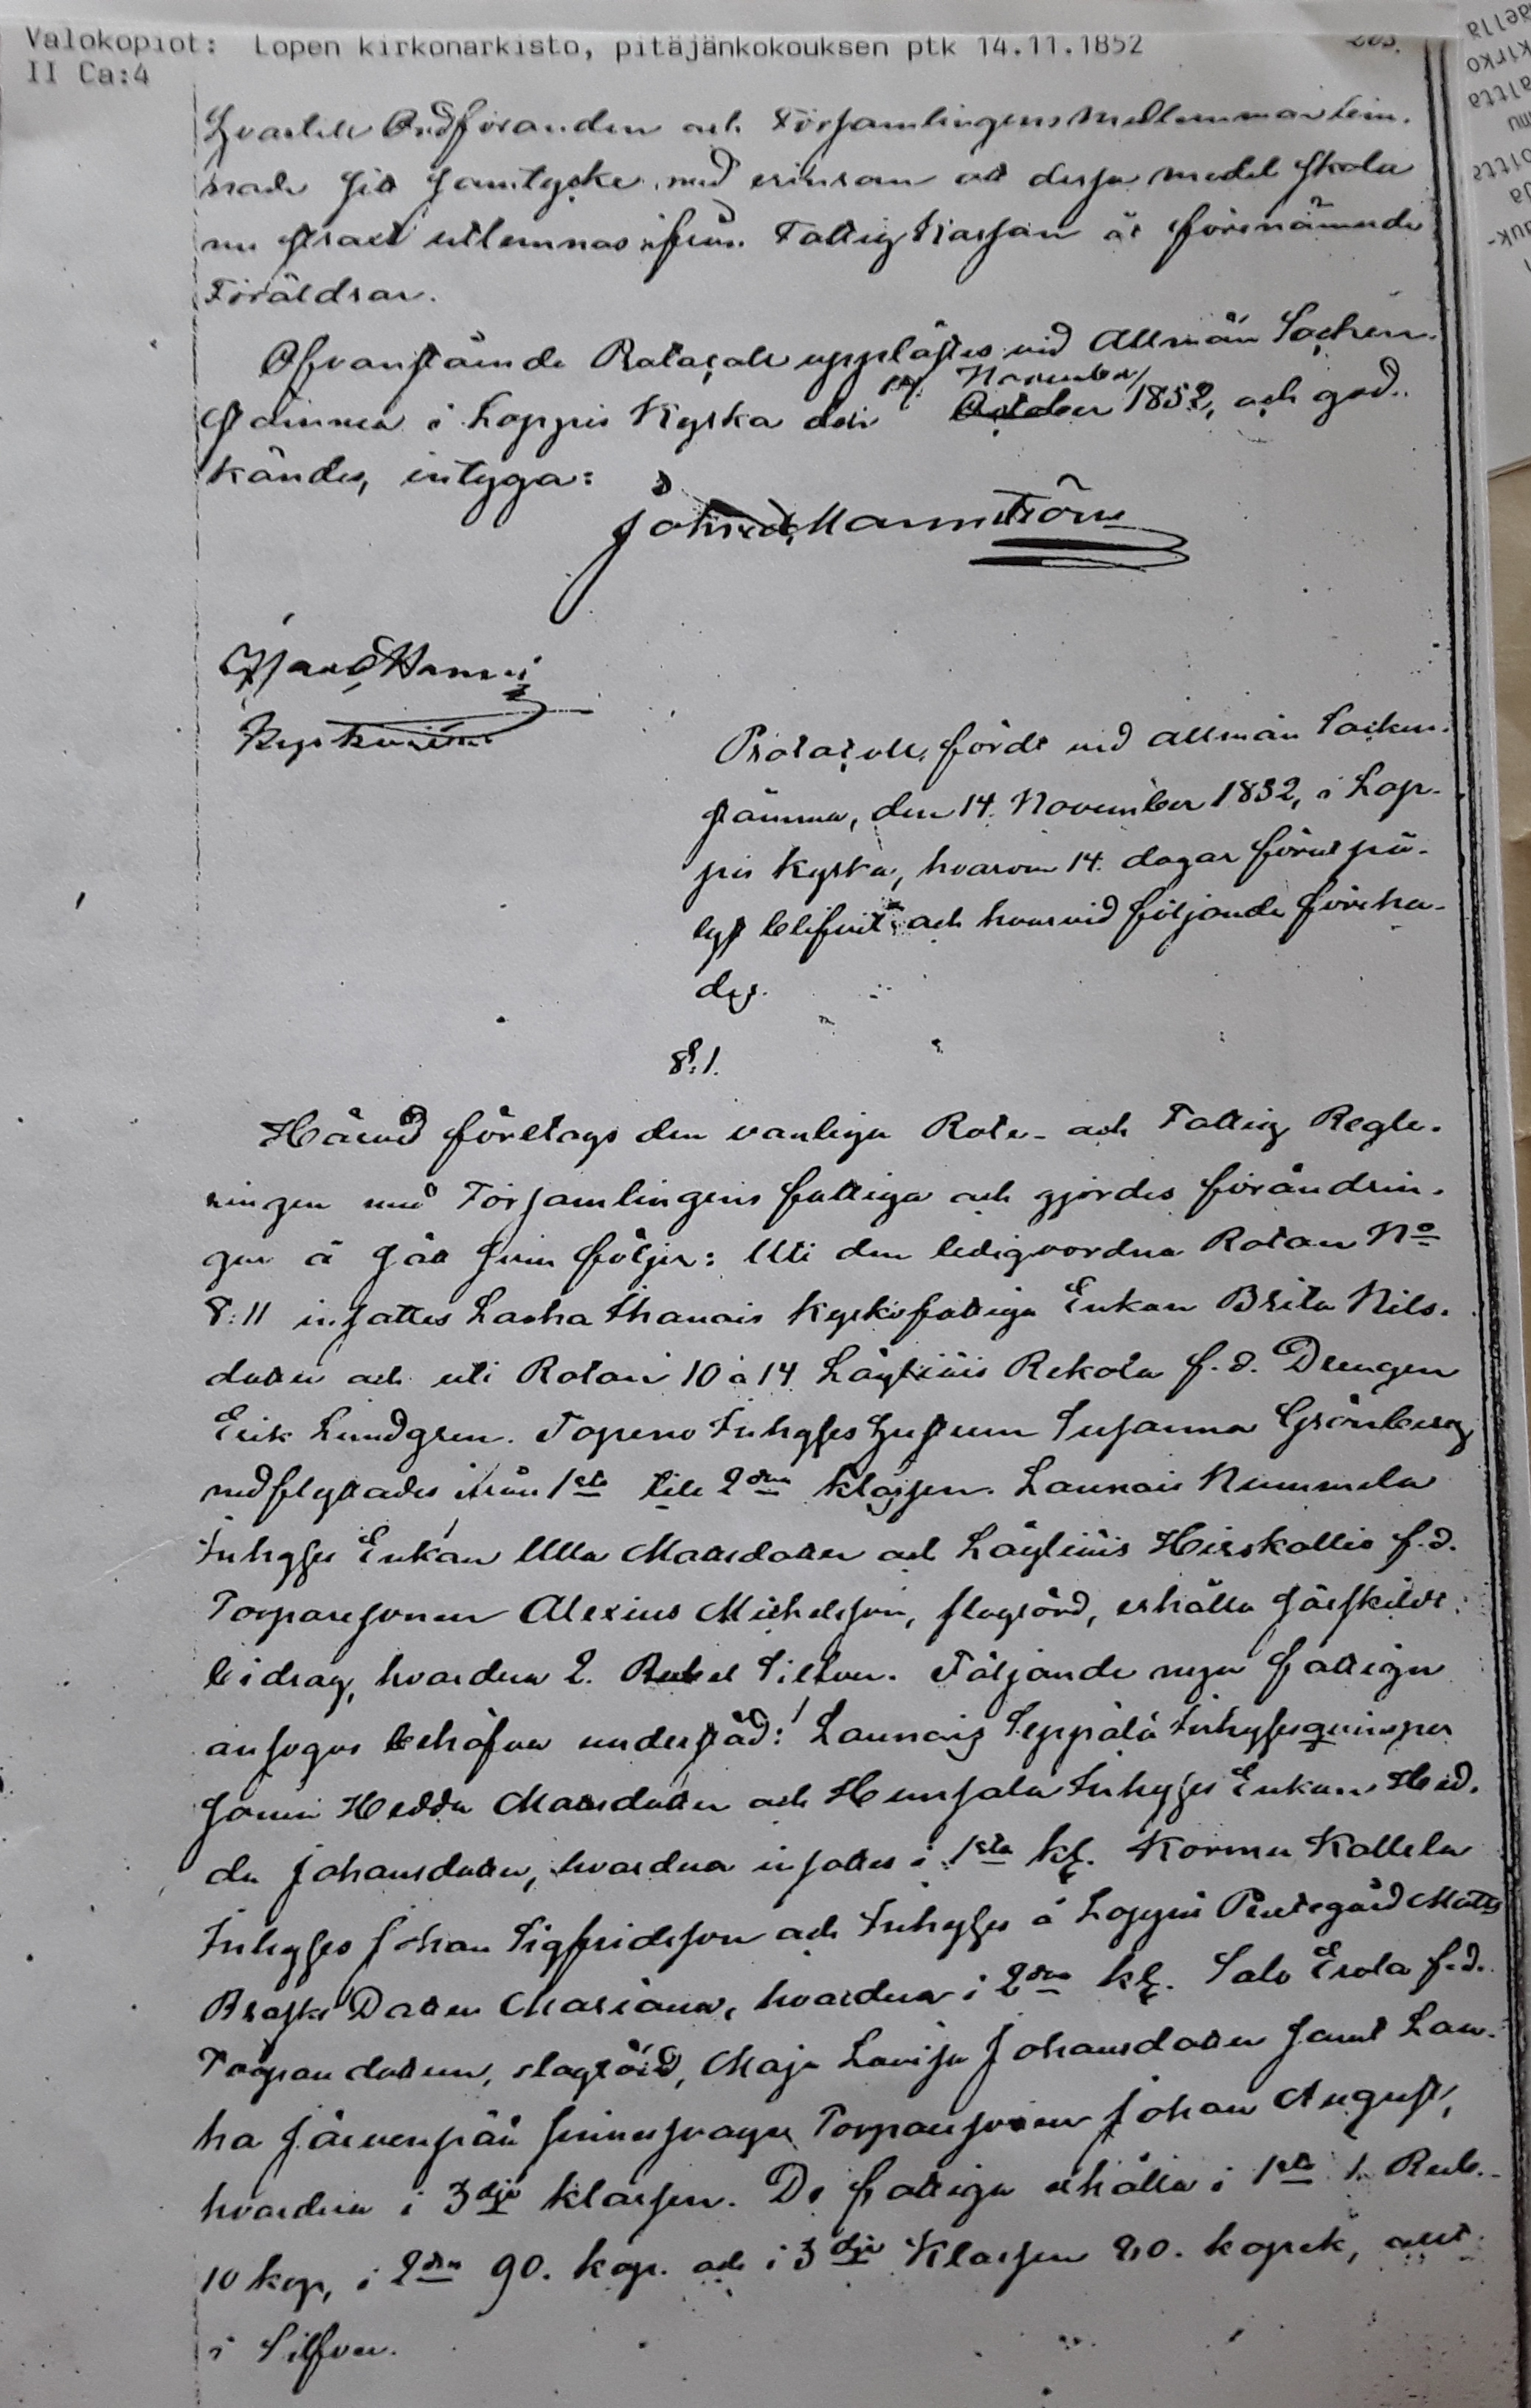 Valokopiot: Lopen kirkonarkisto, pitäjänkokouksen ptk 14.11.1852
II Ca:4
Hvartill Ordföranden och Församlingens medlemmar lem-
nade sitt samtycke med erinran att dessa medel skola
nu strax utlemnas ifrån Fattig Kassan åt förenämnde
Föräldrar.
Ofvanstående Protocoll upplästes vid Allmän Sochen-
14 November
stämma i Loppis Kyrka den October 1852, och god-
kändes, intyga:
Protocoll, fördt vid allmän Socken-
stämma, den 14. November 1852, i Lop-
pis Kyrka, hvarom 14. dagar förut på-
lyst blifvit och hvarvid följande föreha-
des.
§. 1.
Härvid företogs den vanliga Rote- och Fattig Regle-
ringen med Församlingens fattiga och gjordes förändrin-
gar å sätt som följer: Uti den ledigvordna Rotan No
8:11 insattes Kyrkofattiga Enkan Brita Nils-
dotter och uti Rotan 10 à 14 Läyliäis Rekola f.d. Drengen
Erik Lindgren. Topeno Inhyses Hustrun Susanna Grönberg
nedflyttades ifrån 1sta till 2dra klassen. Launois Nummela
Inhyses Enkan Ulla Mattsdotter och Läyliäis Hirskallio f.d.
Torparesonen Alexius Michelsson, slagrörd, erhålla särskildt
bidrag, hvardera 2. Rubel Silfver. Följande nya fattiga
ansågos behöfva understöd: Launois Seppälä Inhysesqvinsper
sonen Hedda Mattsdotter och Hunsala Inhyses Enkan Hed-
da Johansdotter, hvardera insattes i 1sta kl. Kormu Kallela
Inhyses Johan Sigfridsson och Inhyses å Loppis Prestegård Matts
Dotter Mariana, hvardera i 2dra kl. Salo Erola f.d.
Torpardottern, slagrörd, Maja Lovisa Johansdotter samt Law-
ha Järvenpää sinnesvaga Torparesonen Johan August,
hvardera i 3dje klassen. De fattiga erhålla i 1sta 1. Rub.
10 kop, i 2dra 90. kop. och i 3dje Klassen 20. kopek, allt
i Silfver.